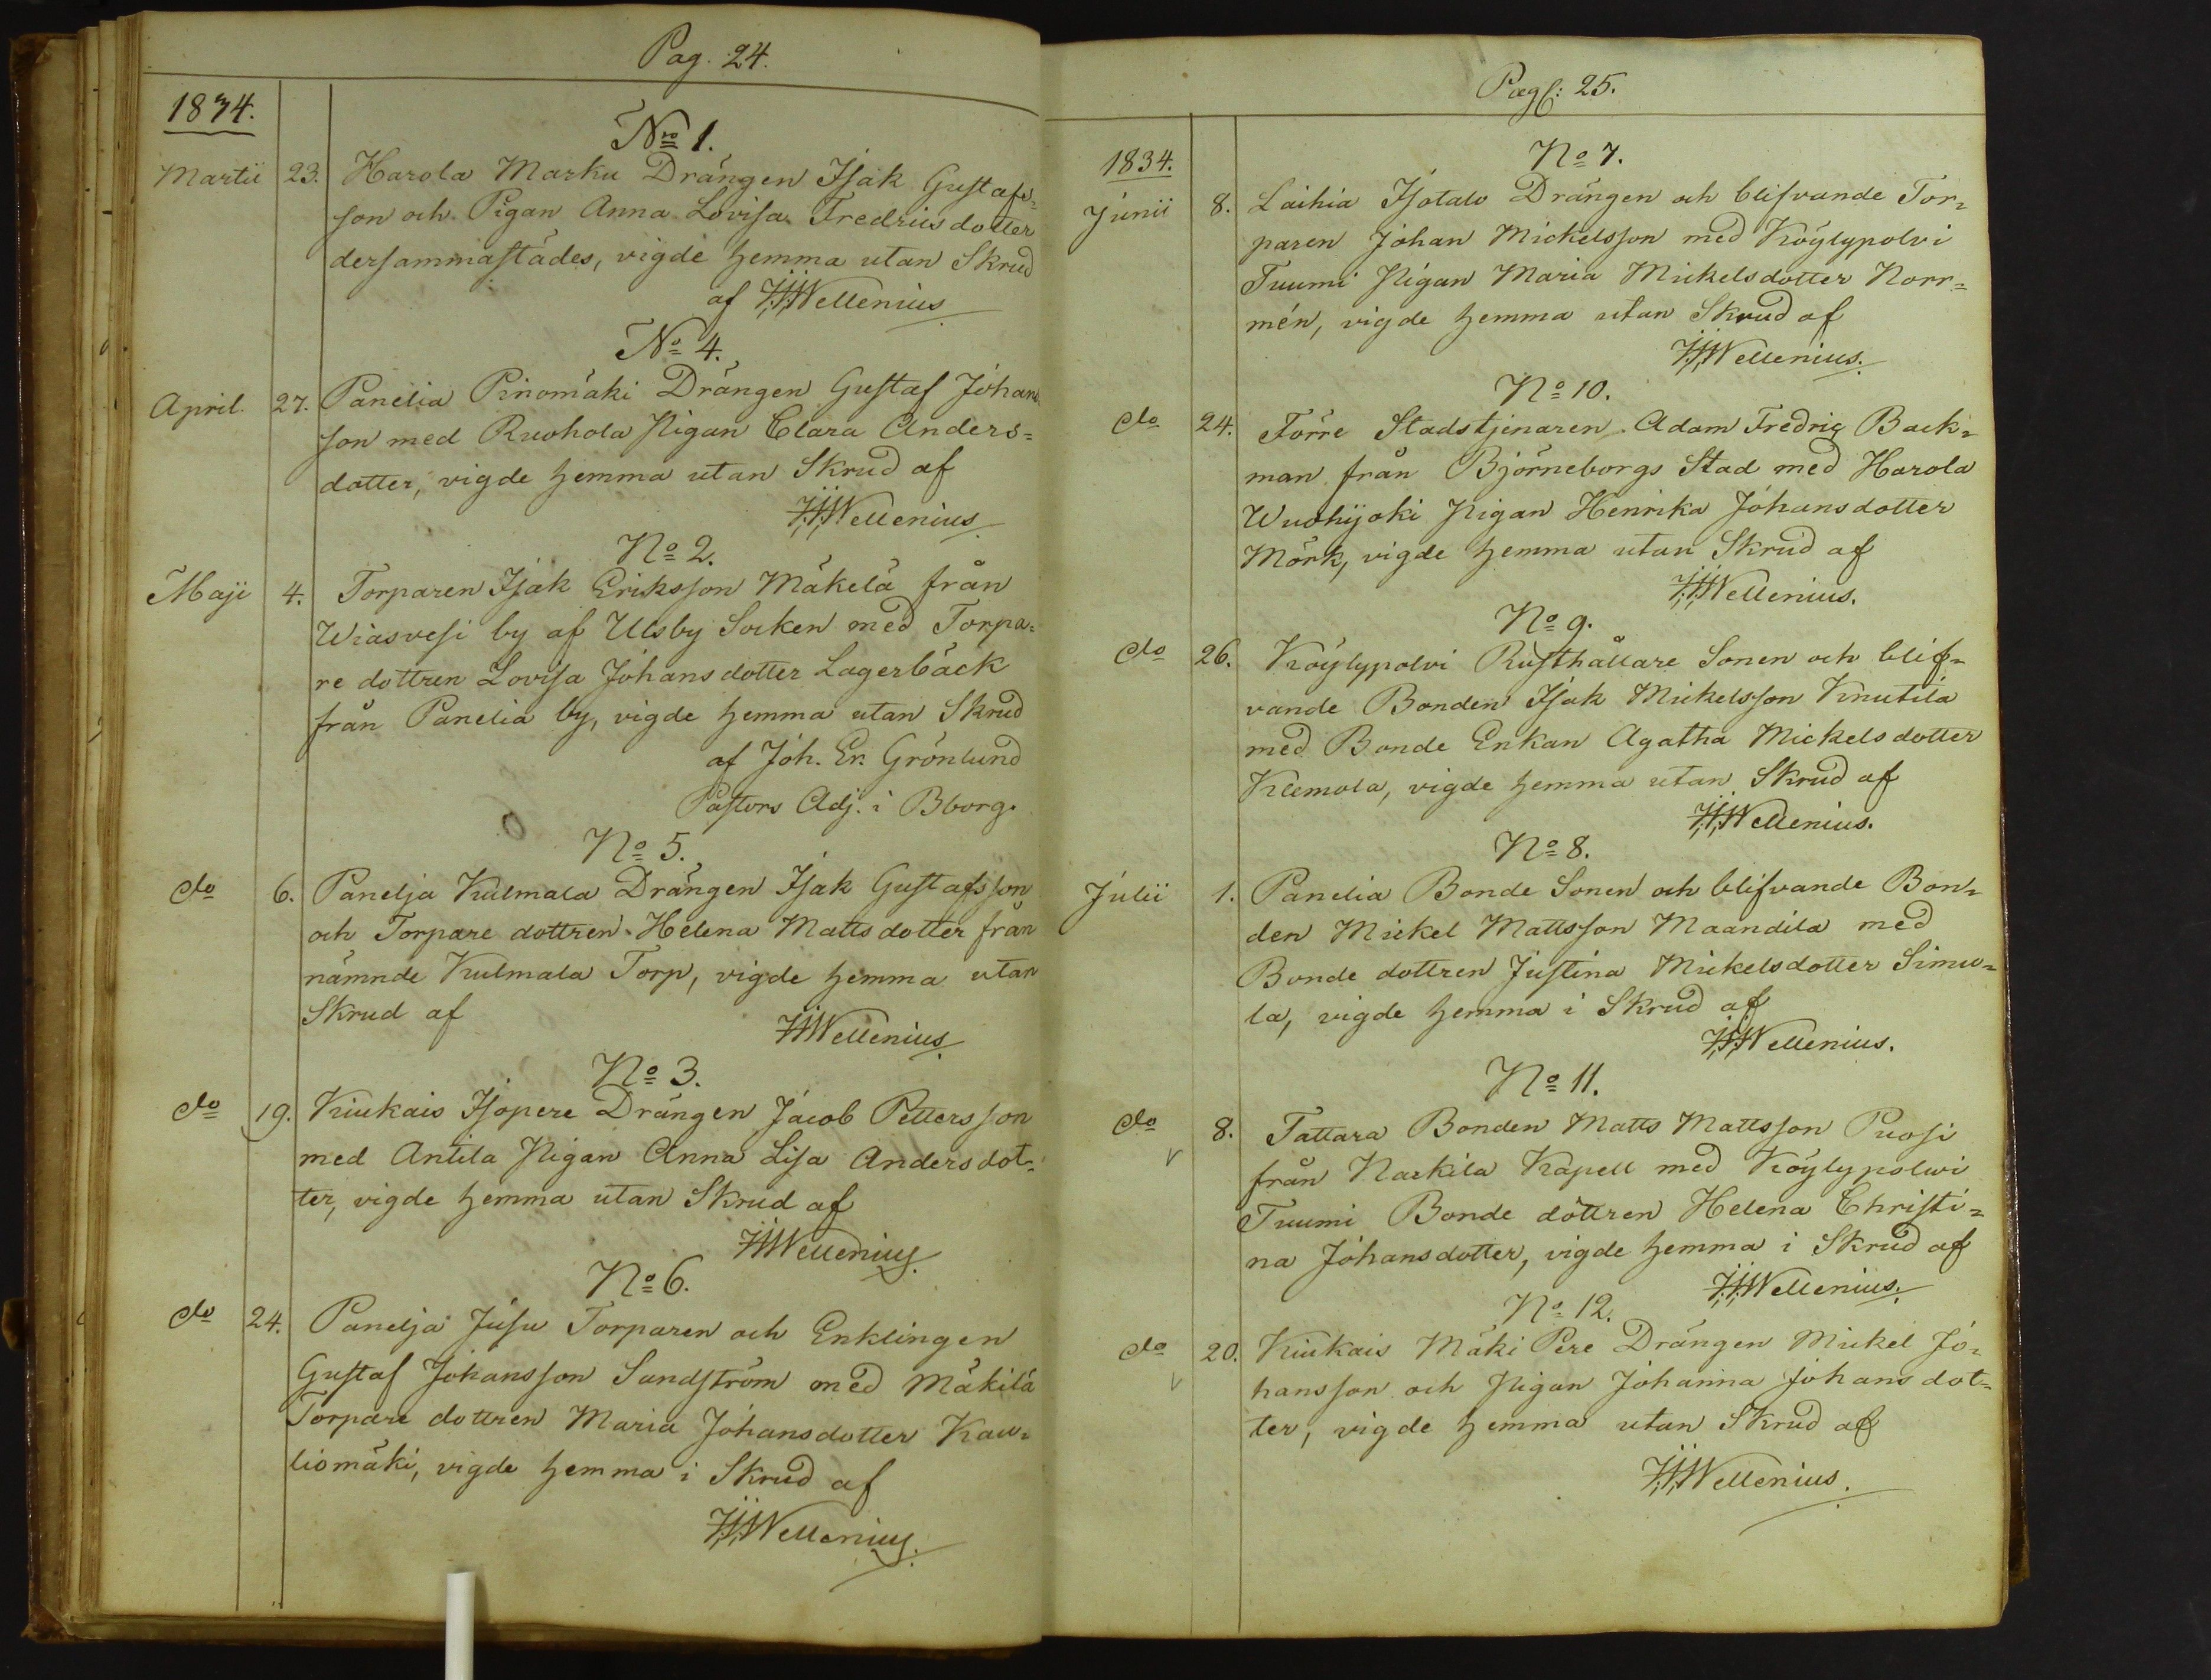 Pag. 24.
1834.
Nro 1.
Martii 23. Harola Marku Drängen Isak Gustafs=
son och Pigan Anna Lovisa Fredriisdotter
dersammastädes, vigde hemma utan Skrud
af Wellenius
No 4.
April. 27. Panelia Pinomäki Drängen Gustaf Johans
son med Ruohola Pigan Clara Anders=
dotter, vigde hemma utan Skrud af
Wellenius
No 2.
Maji 4. Torparen Isak Eriksson Mäkelä från
Wiasvesi by af Ulsby Socken med Torpa=
re dottren Lovisa Johansdotter Lagerbäck
från Panelia by, vigde hemma utan Skrud
af Joh. Er. Grönlund
Pastors Adj. i Bborg.
No 5.
do 6. Panelja Kulmala Drängen Isak Gustafsson
och Torpare dottren Helena Mattsdotter från
nämnde Kulmala Torp, vigde hemma utan
Skrud af
Wellenius
No 3.
do 19. Kiukais Isopere Drängen Jacob Pettersson
med Antila Pigan Anna Lisa Andersdot=
ter, vigde hemma utan Skrud af
Wellenius
No 6.
do 24. Panelja Jusu Torparen och Enklingen
Gustaf Johansson Sandström med Mäkilä
Torpare dottren Maria Johansdotter Kau=
liomäki, vigde hemma i Skrud af
Wellenius.
Pag: 25.
No 7.
1834.
Junii 8. Laihia Isotalo Drängen och blifvande Tor=
paren Johan Mickelsson med Köylypolvi
Tuumi Pigan Maria Mickelsdotter Norr=
mén, vigde hemma utan Skrud af
Wellenius.
No 10.
do 24. Förre Stadstjenaren Adam Fredrig Back=
man från Björneborgs Stad med Harola
Wuohijoki Pigan Henrika Johansdotter
Mörk, vigde hemma utan Skrud af
Wellenius.
No 9.
do 26. Köylypolvi Rusthållare Sonen och blif=
vande Bonden Isak Mickelsson Knutila
med Bonde Enkan Agatha Mickelsdotter
Klemola, vigde hemma utan Skrud af
Wellenius.
No 8.
Julii 1. Panelia Bonde Sonen och blifvande Bon=
den Mickel Mattsson Maandila med
Bonde dottren Justina Mickelsdotter Simu=
la, vigde hemma i Skrud af
Wellenius.
No 11.
do 8. Tattara Bonden Matts Mattsson Puosi
från Nackila Kapell med Köylypolwi
Tuumi Bonde dottren Helena Christi=
na Johansdotter, vigde hemma i Skrud af
Wellenius.
No 12.
do 20. Kiukais Mäki Pere Drängen Mickel Jo=
hansson och Pigan Johanna Johansdot=
ter, vigde hemma utan Skrud af
Wellenius.